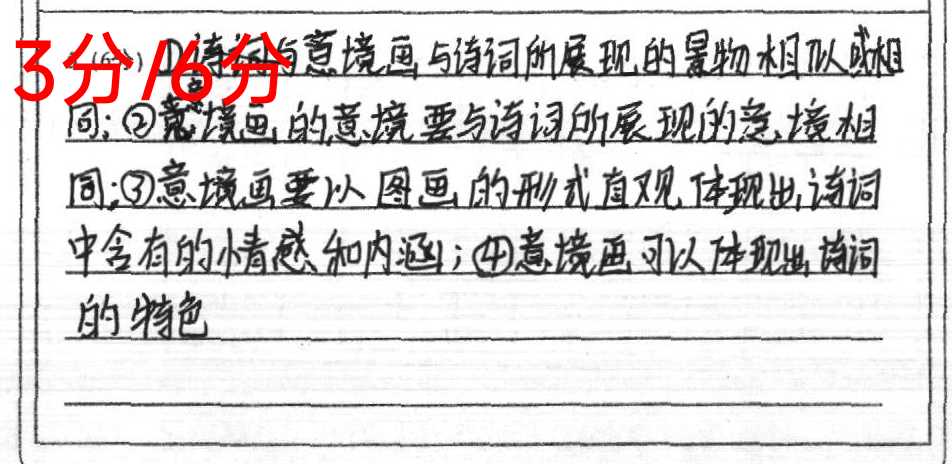 3分/6分
(6分) ①诗词与意境画与诗词所展现的景物相似或相
同;②意境画的意境要与诗词所展现的意境相
同;③意境画要以图画的形式直观体现出诗词
中含有的情感和内涵;④意境画可以体现出诗词
的特色